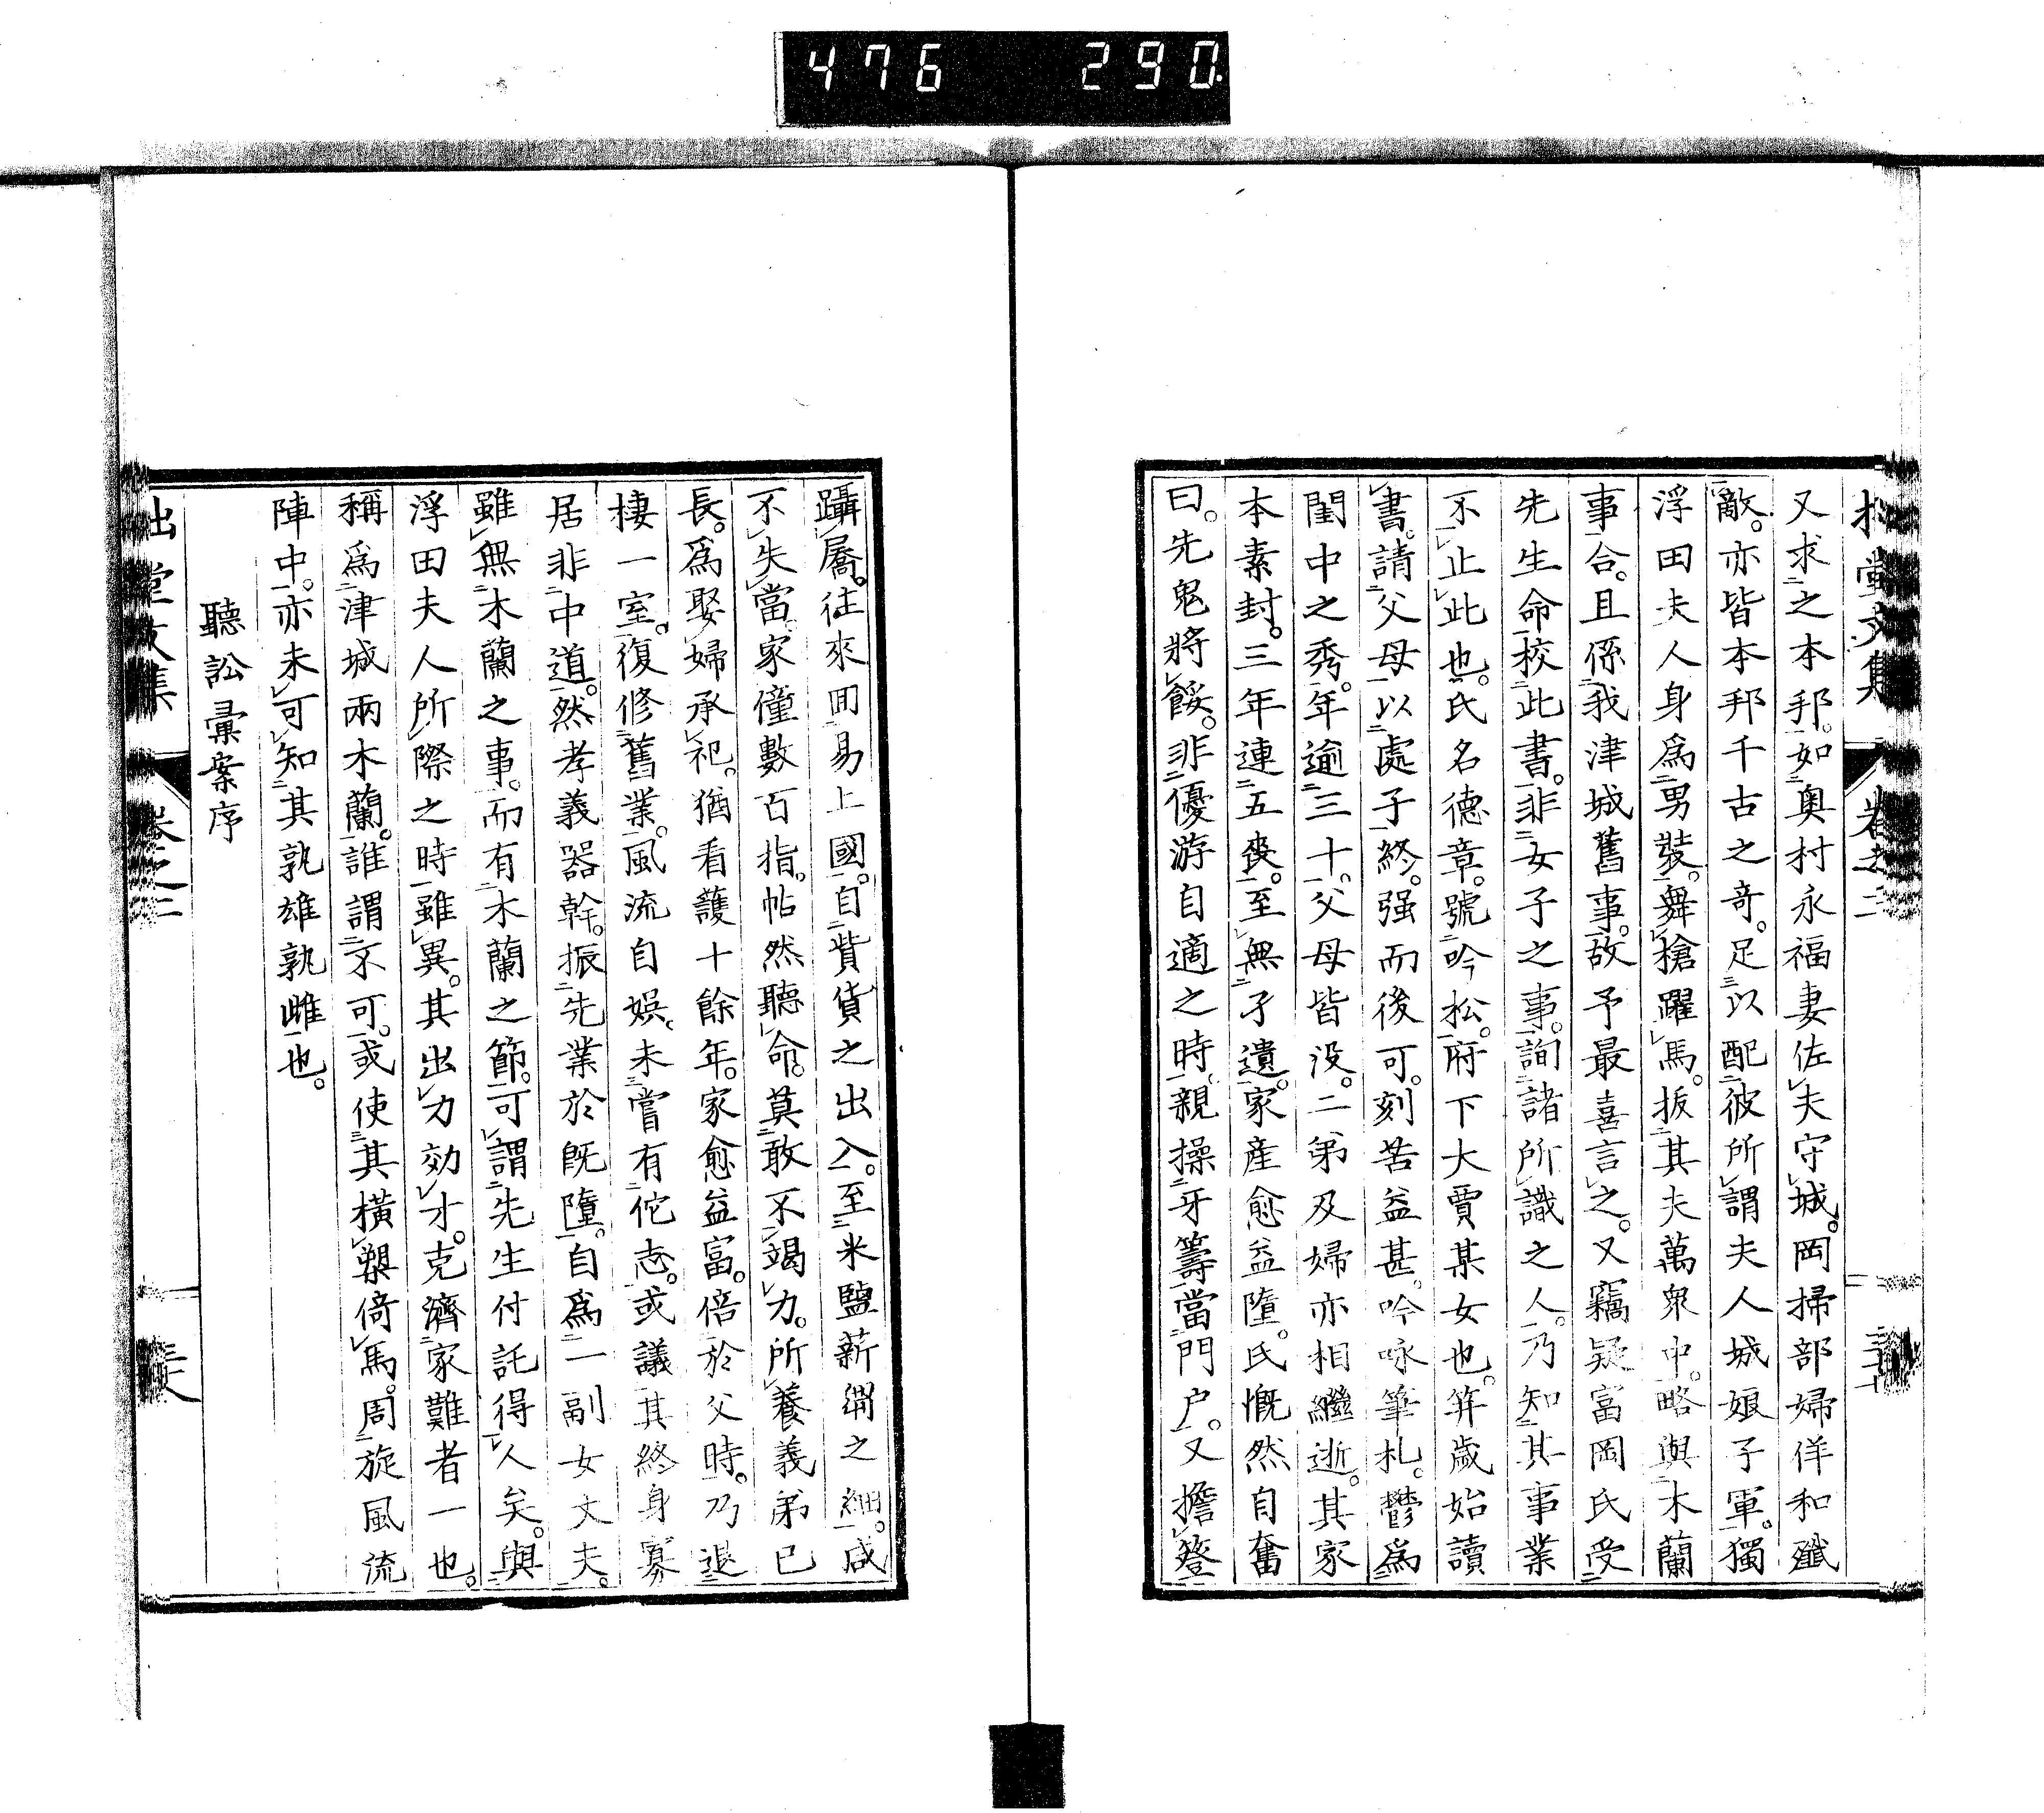 476 290
堂文集 卷之二
又求之本邦。如奥村永福妻佐夫守城。岡掃部婦佯和殲
敵。亦皆本邦千古之奇。足以配彼所謂夫人城娘子軍。獨
浮田夫人身爲男裝。舞槍躍馬。扳其夫萬衆中。略與木蘭
事合。且係我津城舊事。故予最喜言之。又竊疑富岡氏受
先生命校此書。非女子之事。詢諸所識之人。乃知其事業
不止此也。氏名德章。號吟松。府下大賈某女也。笄歲始讀
書。請父母以處子終。强而後可。刻苦益甚。吟咏筆札。鬱爲
閨中之秀。年逾三十。父母皆没。二弟及婦亦相繼逝。其家
本素封。三年連五喪。至無孑遺。家産愈益墮。氏慨然自奮
曰。先鬼將餒。非優游自適之時。親操牙籌當門户。又擔簦
躡屩。往來回易上國。自貲貨之出入。至米鹽薪澗之細。咸
不失當。家僮數百指。帖然聽命。莫敢不竭力。所養義弟已
長。爲娶婦承祀。猶看護十餘年。家愈益富。倍於父時。乃退
棲一室。復修舊業。風流自娯。未嘗有佗志。或議其終身寡
居非中道。然孝義器幹。振先業於既墮。自爲一副女丈夫。
雖無木蘭之事。而有木蘭之節。可謂先生付託得人矣。與
浮田夫人所際之時雖異。其出力効才。克濟家難者一也。
稱爲津城兩木蘭。誰謂不可。或使其橫槊倚馬。周旋風流
陣中。亦未可知其孰雄孰雌也。
聽訟彙案序
堂文集 卷之二